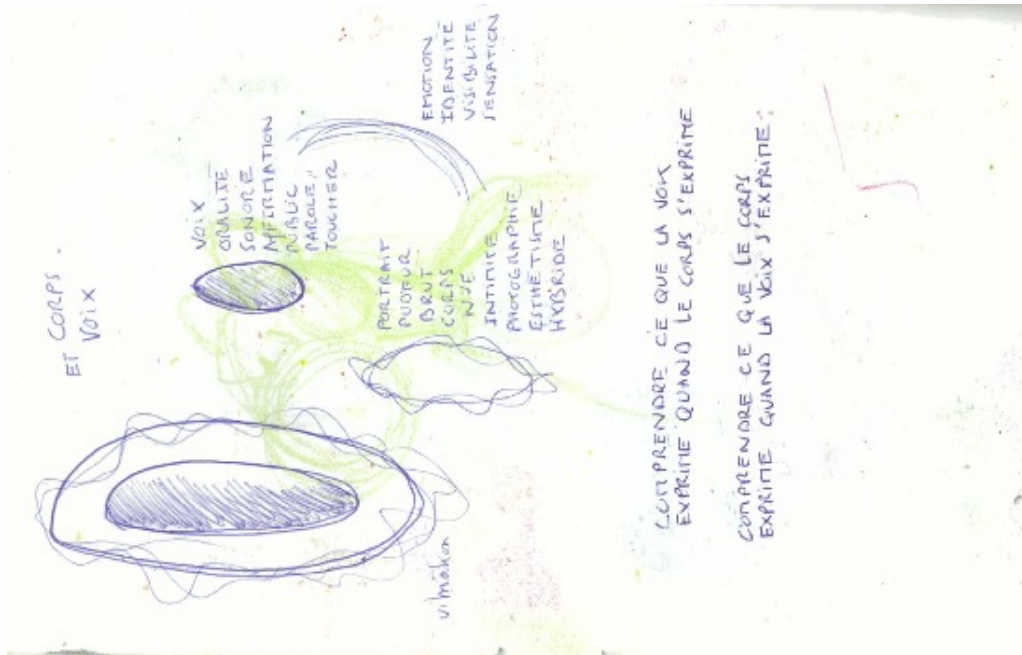 ET CORPS.
VOIX
VOIX
ORALITÉ
SONORE
AFFIRMATION
PUBLIC
PAROLE
TOUCHER
EMOTION
IDENTITÉ
VISIBILITÉ
SENSATION
PORTRAIT
PUDEUR
BRUT
CORPS
INTIMITE
PHOTOGRAPHIE
ESTHÉTISME
HYBRIDE
COMPRENDRE CE QUE LA VOIX
EXPRIME QUAND LE CORPS S'EXPRIME
COMPRENDRE CE QUE LE CORPS
EXPRIME QUAND LA VOIX S'EXPRIME.